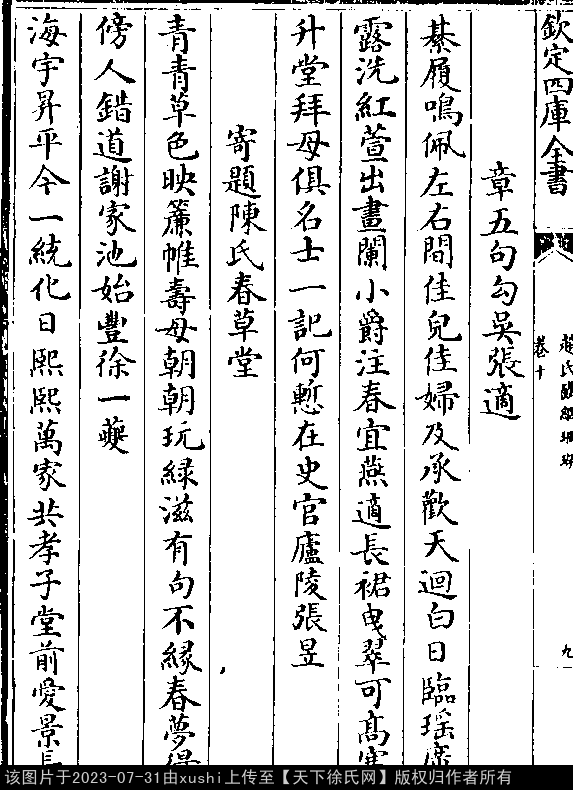 欽定四庫全書
卷十
九
章五句勾吳張適
綦履鳴佩左右間佳兒佳婦及承歡天迴白日臨瑤席
露洗紅萱出畫闌小爵注春宜燕適長裙曳翠可高寒
升堂拜母俱名士一記何慙在史官廬陵張昱
寄題陳氏春草堂
青青草色映簾帷壽母朝朝玩緑滋有句不緣春夢得
傍人錯道謝家池始豐徐一夔
海宇昇平今一統化日熙熙萬家共孝子堂前愛景長
该图片于2023-07-31由xushi上传至【天下徐氏网】版权归作者所有